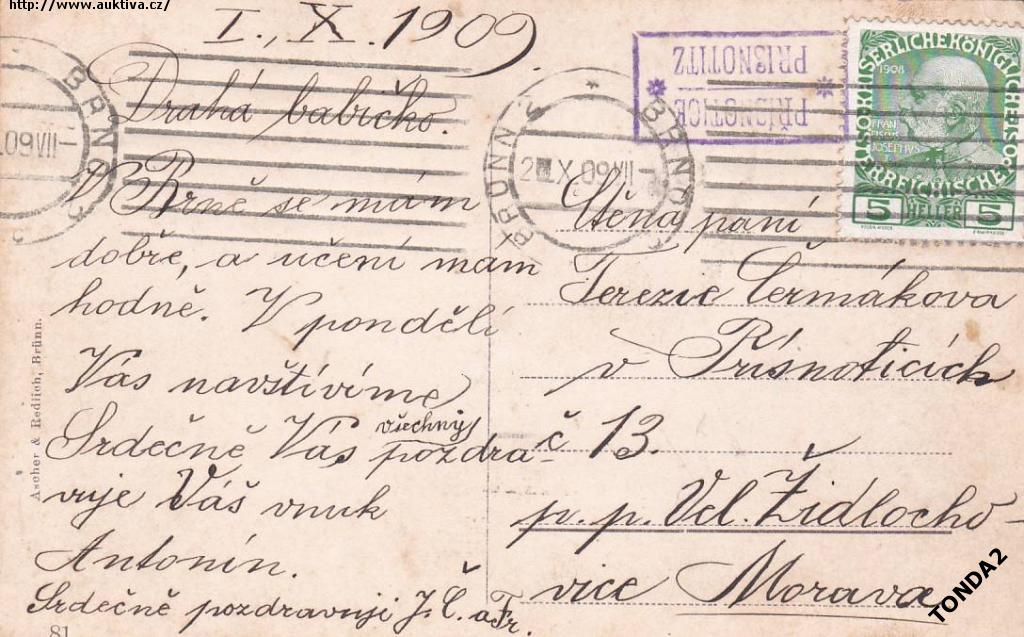 http://www.auktiva.cz/
I., X. 1909.
Drahá babičko.
V Brně se mám
dobře, a učení mám
hodně. V pondělí
Vás navštívíme
Srdečně Vás všechny pozdra-
vuje Váš vnuk
Antonín.
Srdečně pozdravují J. Č. a Fr.
81
Ascher & Redlich, Brünn.
BRNO
09 VII-
BRÜNN
BRNO
X 09 VII-
PŘISNOTICE
PRISNOTITZ
1908
FRAN
JOSEPHVS
5 HELLER 5
Ctěná paní
Terezie Čermákova
v Přísnoticích
č 13.
p. p. Vel. Židlocho-
vice Morava
TONDA2